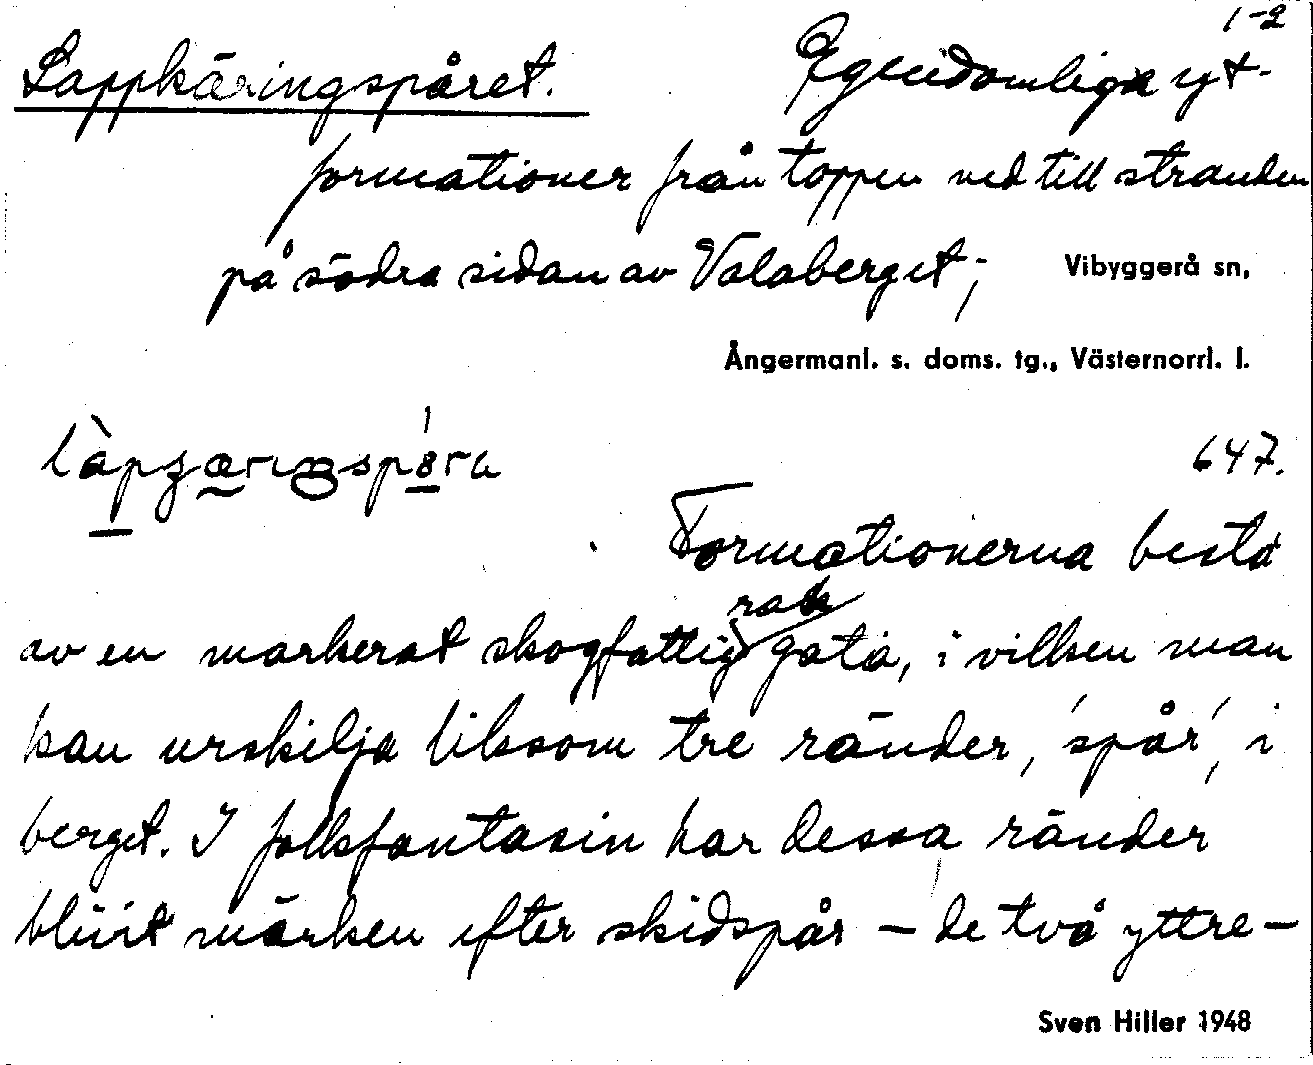 1-2
Lappkäringspåret. Egendomliga yt-
formationer från toppen ned till stranden
på södra sidan av Valaberget; Vibyggerå sn,
Ångermanl. s. doms. tg., Västernorrl. l.
647.
Formationerna bestå
av en markerat skogfattig rak gata, i vilken man
kan urskilja liksom tre ränder, 'spår', i
berget. I folkfantasin har dessa ränder
blivit märken efter skidspår – de två yttre –
Sven Hiller 1948